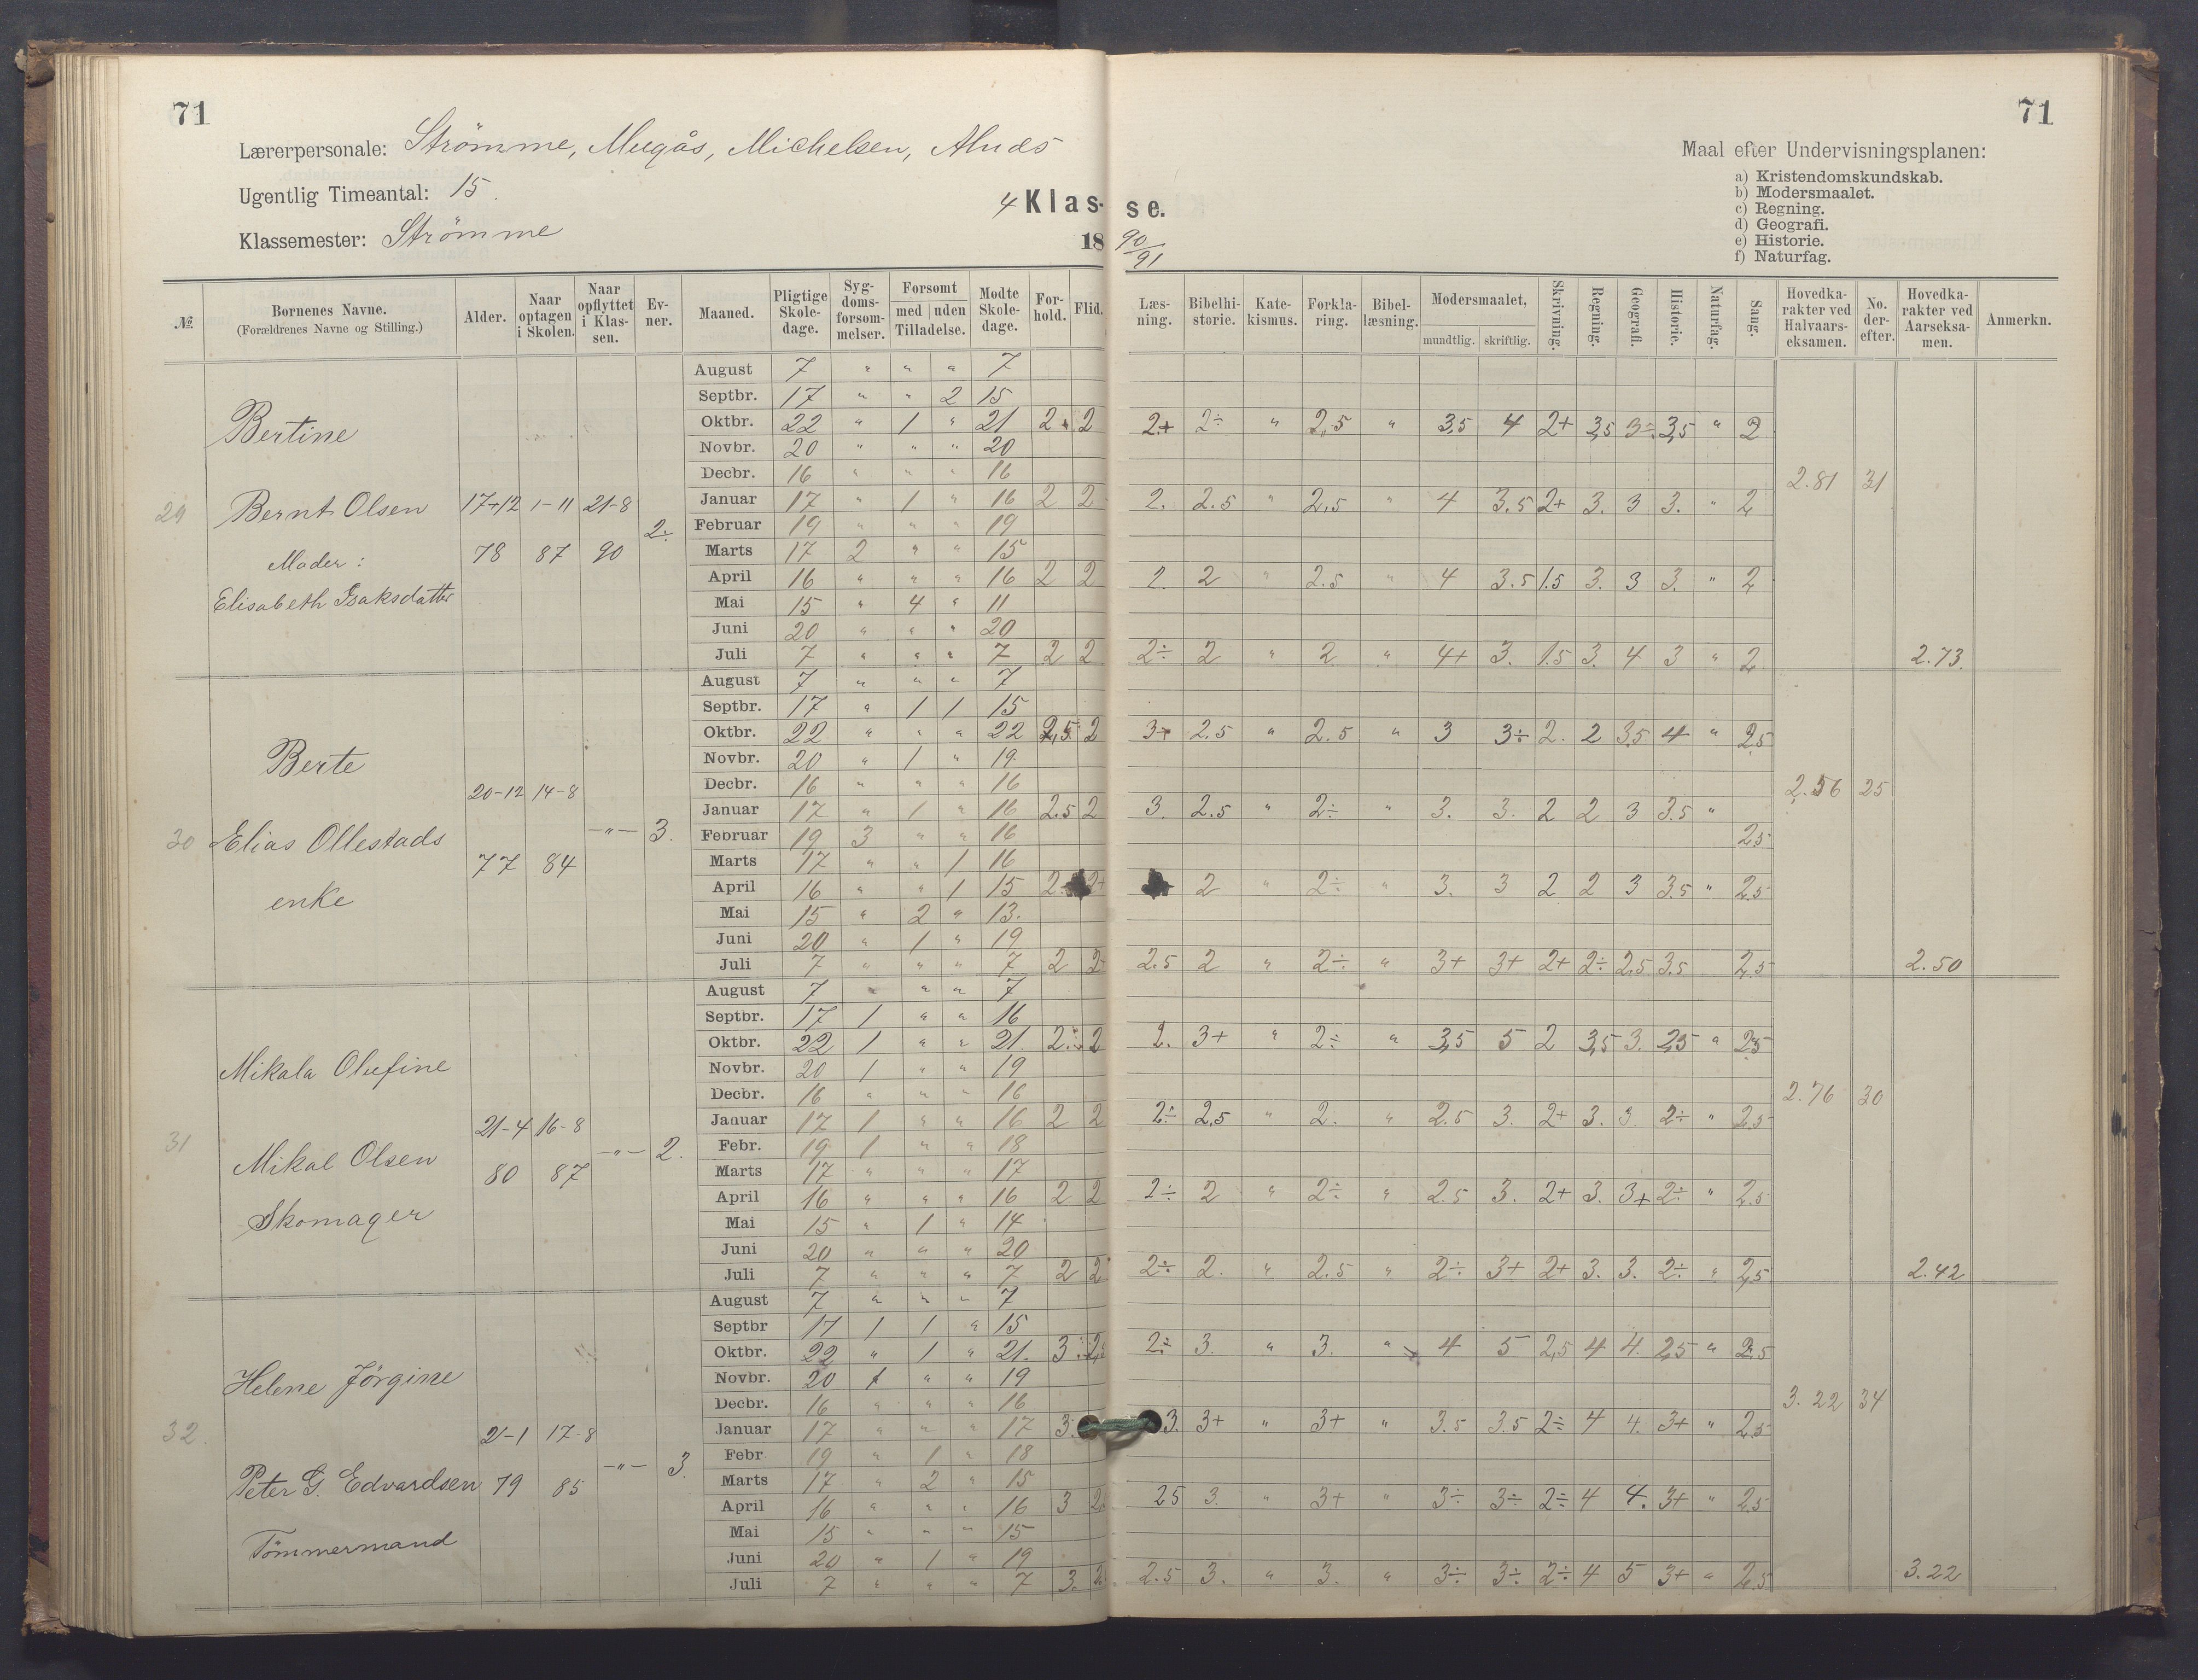 71
71
Lærerpersonale: Strömme, Mugås, Michelsen,
Ugentlig Timeantal: 15.
Klassemester: Strömme
4 Klas- se.
18 90/91
Maal efter Undervisningsplanen:
a) Kristendomskundskab.
b) Modersmaalet.
c) Regning.
d) Geografi.
e) Historie.
f) Naturfag.
№ Børnenes Navne. (Forældrenes Navne og Stilling.) Alder. Naar optagen i Skolen. Naar opflyttet i Klassen. Evner. Maaned. Pligtige Skoledage. Sygdomsforsømmelser. Forsømt med uden Tilladelse. Mødte Skoledage. Forhold. Flid. Læsning. Bibelhistorie. Katekismus. Forklaring. Bibellæsning. Modersmaalet, mundtlig. skriftlig. Skrivning. Regning. Geografi. Historie. Naturfag. Sang. Hovedkarakter ved Halvaarseksamen. No. derefter. Hovedkarakter ved Aarseksamen. Anmerkn.
29 Bertine
Bernt Olsen
Moder:
Elisabeth Isaksdatter
17-12 78 1-11 87 21-8 90 2÷
August 7 " " " 7
Septbr. 17 " " 2 15
Oktbr. 22 " 1 " 21 2 2 2+ 2÷ " 2,5 " 3,5 4 2+ 3,5 3÷ 3,5 " 2
Novbr. 20 " " " 20
Decbr. 16 " " " 16 2.81 31
Januar 17 " 1 " 16 2 2 2. 2.5 " 2,5 " 4 3.5 2+ 3. 3 3. " 2
Februar 19 " " " 19
Marts 17 2 " " 15
April 16 " " " 16 2 2 2. 2 " 2.5 " 4 3.5 1.5 3. 3 3. " 2
Mai 15 " 4 " 11
Juni 20 " " " 20
Juli 7 " " " 7 2 2 2÷ 2 " 2 " 4+ 3. 1.5 3. 4 3 " 2 2.73.
30 Berte
Elias Ollestads
enke
20-12 77 14-8 84 -"- 3.
August 7 " " " 7
Septbr. 17 " 1 1 15
Oktbr. 22 " " " 22 2,5 2 3+ 2.5 " 2.5 " 3 3÷ 2. 2 3,5 4 " 2,5
Novbr. 20 " 1 " 19
Decbr. 16 " " " 16 2.56 25
Januar 17 " 1 " 16 2.5 2 3. 2.5 " 2÷ 3. 3. 2 2 3 3.5 " 2.5
Februar 19 3 " " 16
Marts 17 " " 1 16
April 16 " " 1 15 2+ 2 " 2÷ " 3. 3 2 2 3 3.5 " 2.5
Mai 15 " 2 " 13.
Juni 20 " 1 " 19
Juli 7 " " " 7 2 2+ 2.5 2 " 2÷ " 3+ 3+ 2+ 2÷ 2.5 3.5 2.5 2.50
31 Mikala Olufine
Mikal Olsen
Skomager
21-4 80 16-8 87 -"- 2.
August 7 " " " 7
Septbr. 17 1 " " 16
Oktbr. 22 1 " " 21. 2÷ 2 2. 3+ " 2÷ " 3,5 5 2 3,5 3. 2,5 " 2,5
Novbr. 20 1 " " 19
Decbr. 16 " " " 16 2.76 30
Januar 17 1 " " 16 2 2 2÷ 2,5 " 2. " 2.5 3. 2+ 3. 3. 2÷ " 2.5
Febr. 19 1 " " 18
Marts 17 " " " 17
April 16 " " " 16 2 2 2÷ 2 " 2÷ " 2.5 3. 2+ 3. 3+ 2÷ " 2.5
Mai 15 " 1 " 14
Juni 20 " " " 20
Juli 7 " " " 7 2 2 2÷ 2. " 2.5 " 2÷ 3+ 2+ 3. 3. 2÷ " 2,5 2.42
32. Helene Jörgine
Peter G. Edvardsen
Tömmermand
21-1 79 17-8 85 -"- 3.
August 7 " " " 7
Septbr 17 1 1 " 15
Oktbr. 22 " 1 " 21. 3 2,5 2÷ 3. " 3. " 4 5 2,5 4 4. 2,5 " 2.5
Novbr. 20 1 " " 19
Decbr. 16 " " " 16 3.22 34
Januar 17 " " " 17 3. 3. 3+ " 3+ " 3.5 3.5 2÷ 4 4. 3+ " 2.5
Febr 19 " 1 " 18
Marts 17 " 2 " 15
April 16 " " " 16 3 2 25 3. " 3+ " 3÷ 3÷ 2÷ 4 4. 3+ " 2.5
Mai 15 " " " 15
Juni 20 " 1 " 19
Juli 7 " " " 7 3. 2. 2.5 3. " 3. " 3÷ 3÷ 2÷ 4 5 3+ " 2.5 3.22